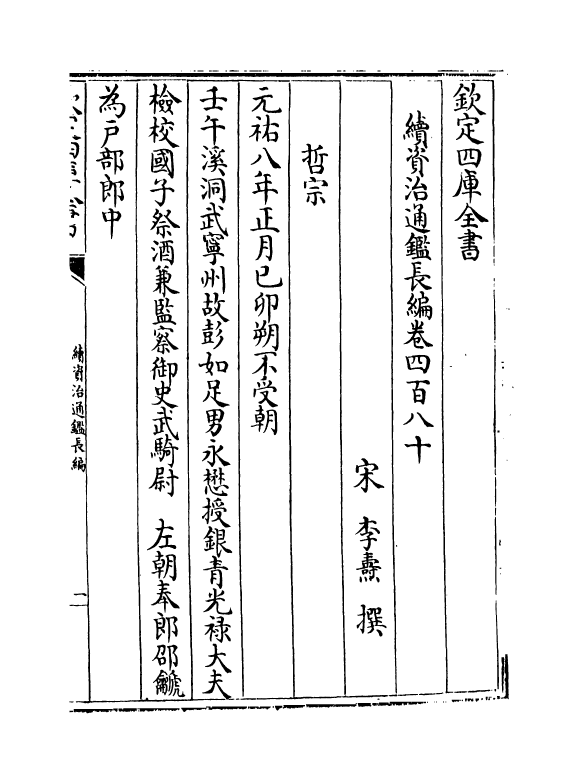 欽定四庫全書
續資治通鑑長編卷四百八十
宋 李燾 撰
哲宗
元祐八年正月己卯朔不受朝
壬午溪洞武寧州故彭如足男永懋授銀青光禄大夫
檢校國子祭酒兼監察御史武騎尉 左朝奉郎邵䶵
為户部郎中
續資治通鑑長編
二